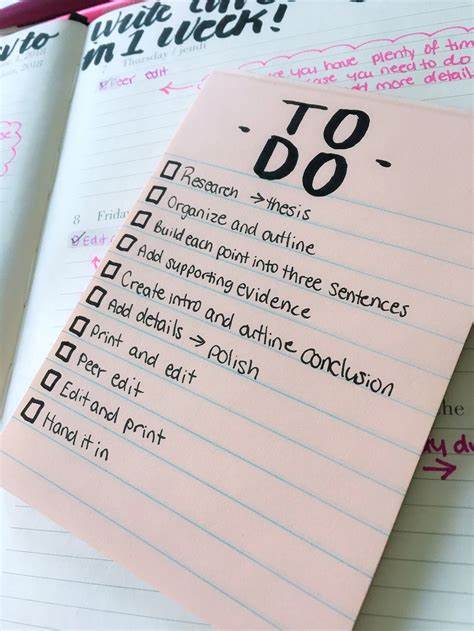 to
Write
in 1 week!
1, 2018
Thursday / jeudi
Peer edit
you have plenty of time
case you need to do
more detail
8 Friday
Edit
- TO -
DO
Research → thesis
Organize and outline
Build each point into three sentences
Add supporting evidence
Create intro and outline conclusion
Add details → polish
Print and edit
Peer edit
Edit and print
Hand it in
che
du